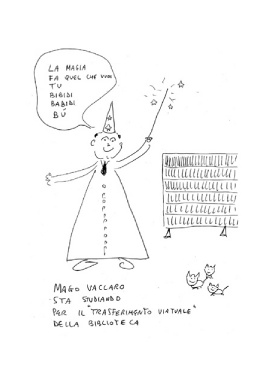 LA MAGIA
FA QUEL CHE VUOI
TU
BIBIDI
BABIDI
BÚ
MAGO VACCARO
STA STUDIANDO
PER IL "TRASFERIMENTO VIRTUALE"
DELLA BIBLIOTECA